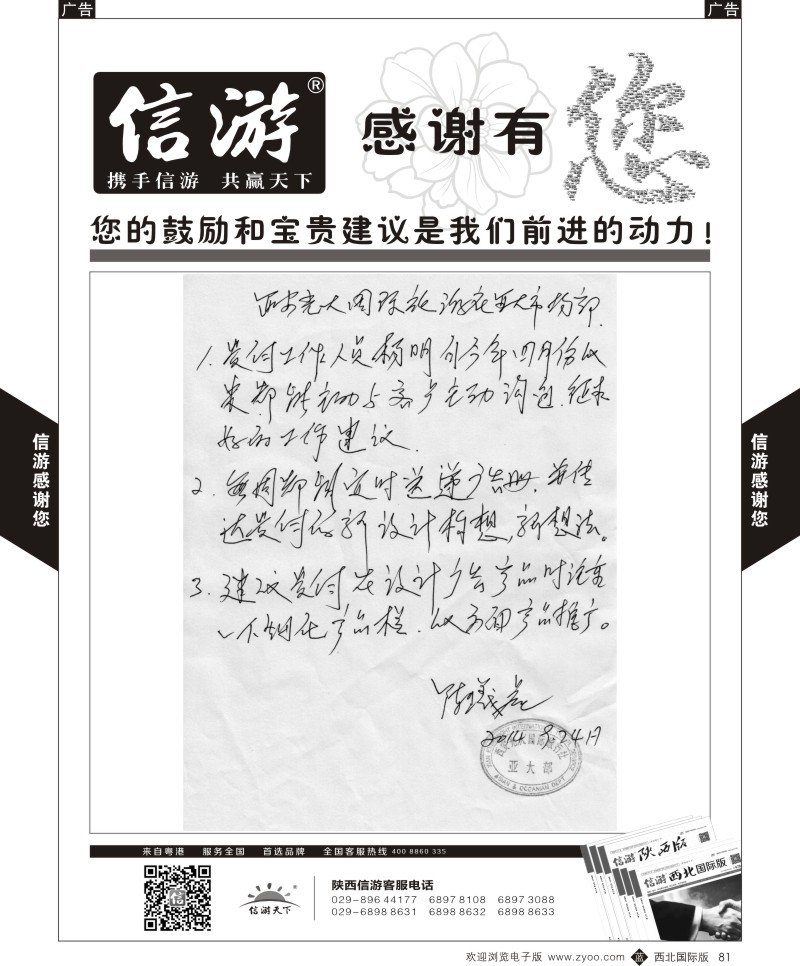 广告
广告
信游®
携手信游 共赢天下
感谢有
您
您的鼓励和宝贵建议是我们前进的动力！
西安光大国际旅行社亚大市场部
1. 工作人员杨明 今年四月份以
来都能主动与客户主动沟通，征求
好的工作建议.
2. 每周都能定时送递广告册，
达 设计构想，新想法。
3. 建议 在设计广告产品时
产品栏，以 产品推广。
2014 9.24日
西安光大国际旅行社
亚大部
ASIAN & OCEANIAN DEPT
信游感谢您
信游感谢您
来自粤港 服务全国 首选品牌 全国客服热线 400 8860 335
信游天下
陕西信游客服电话
029-896 44177 6897 8108 6897 3088
029-6898 8631 6898 8632 6898 8633
信游 陕西版
信游 西北国际版
欢迎浏览电子版 www.zyoo.com 蓝 西北国际版 81